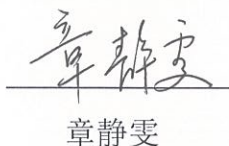 章静雯
章静雯